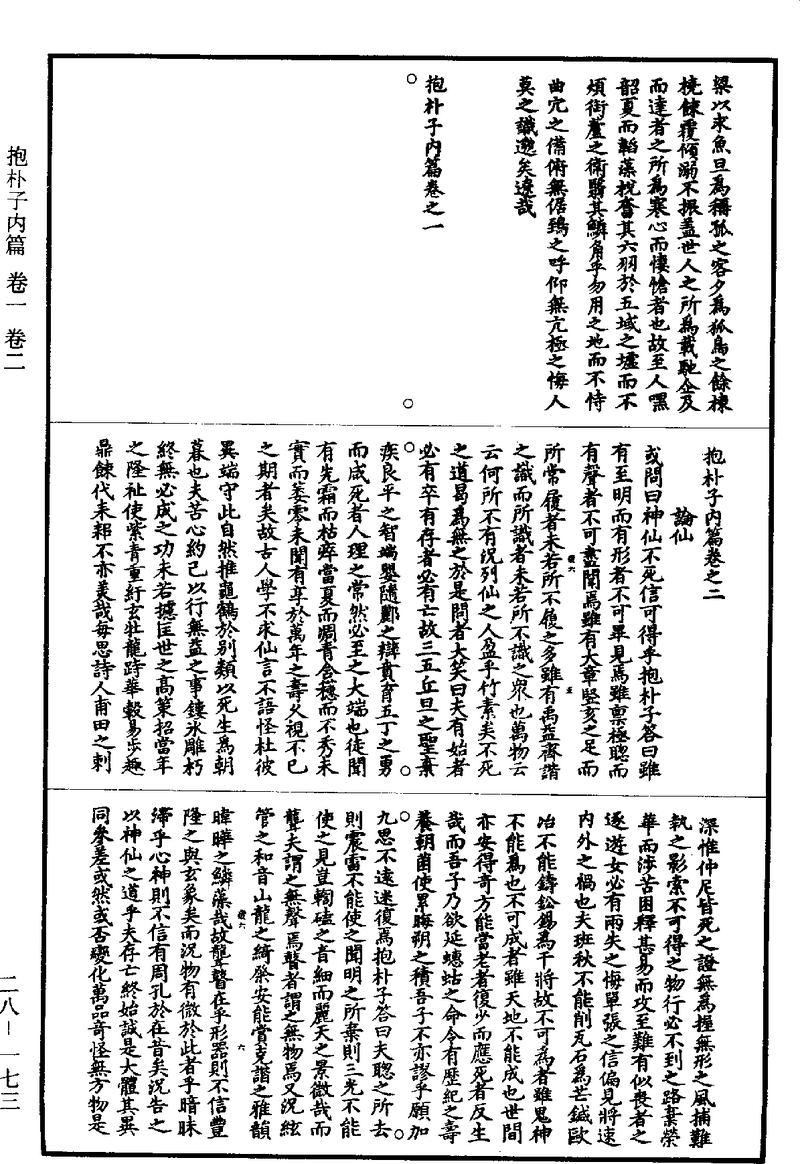 抱朴子内篇 卷一 卷二
二八－一七三
梁以求魚旦爲稱孤之客夕爲狐鳥之餘棟
橈餗覆傾溺不振蓋世人之所爲載馳企及
而達者之所爲寒心而悽愴者也故至人嘿
韶夏而韜藻梲奮其六羽於五城之墟而不
煩銜蘆之衛翳其鱗角乎勿用之地而不恃
曲穴之備俯無倨鵄之呼仰無亢極之悔人
莫之識邈矣遼哉
抱朴子内篇卷之一
抱朴子内篇卷之二
論仙
或問曰神仙不死信可得乎抱朴子答曰雖
有至明而有形者不可畢見焉雖禀極聰而
有聲者不可盡聞焉雖有大章竪亥之足而
所常履者未若所不履之多雖有禹益齊諧
之識而所識者未若所不識之衆也萬物云
云何所不有况列仙之人盈乎竹素矣不死
之道曷爲無之於是問者大笑曰夫有始者
必有卒有存者必有亡故三五丘旦之聖棄
疾良平之智端嬰隨酈之辯賁育五丁之勇
而咸死者人理之常然必至之大端也徒聞
有先霜而枯瘁當夏而凋青含穗而不秀未
實而萎零未聞有享於萬年之壽久視不已
之期者矣故古人學不求仙言不語怪杜彼
異端守此自然推龜鶴於别類以死生爲朝
暮也夫苦心約己以行無益之事鏤冰雕朽
終無必成之功未若攄匡世之高策招當年
之隆祉使紫青重紆玄牡龍跱華轂易步趣
鼎餗代耒耜不亦美哉每思詩人甫田之刺
深惟仲尼皆死之證無爲握無形之風捕難
執之影索不可得之物行必不到之路棄榮
華而涉苦困釋甚易而攻至難有似喪者之
逐遊女必有兩失之悔單張之信偏見將速
内外之禍也夫班狄不能削瓦石爲芒鍼歐
冶不能鑄鉛錫爲干將故不可爲者雖鬼神
不能爲也不可成者雖天地不能成也世間
亦安得奇方能當老者復少而應死者反生
哉而吾子乃欲延蟪蛄之命令有歷紀之壽
養朝菌使累晦朔之積吾子不亦謬乎願加
九思不遠迷復焉抱朴子答曰夫聰之所去
則震雷不能使之聞明之所棄則三光不能
使之見豈輷磕之音細而麗天之景微哉而
聾夫謂之無聲焉瞽者謂之無物焉又況絃
管之和音山龍之綺粲安能賞克諧之雅韻
暐曄之鱗藻哉故聾瞽在乎形器則不信豐
隆之與玄象矣而況物有微於此者乎暗昧
滯乎心神則不信有周孔於在昔矣況告之
以神仙之道乎夫存亡終始誠是大體其異
同參差或然或否變化萬品奇怪無方物是